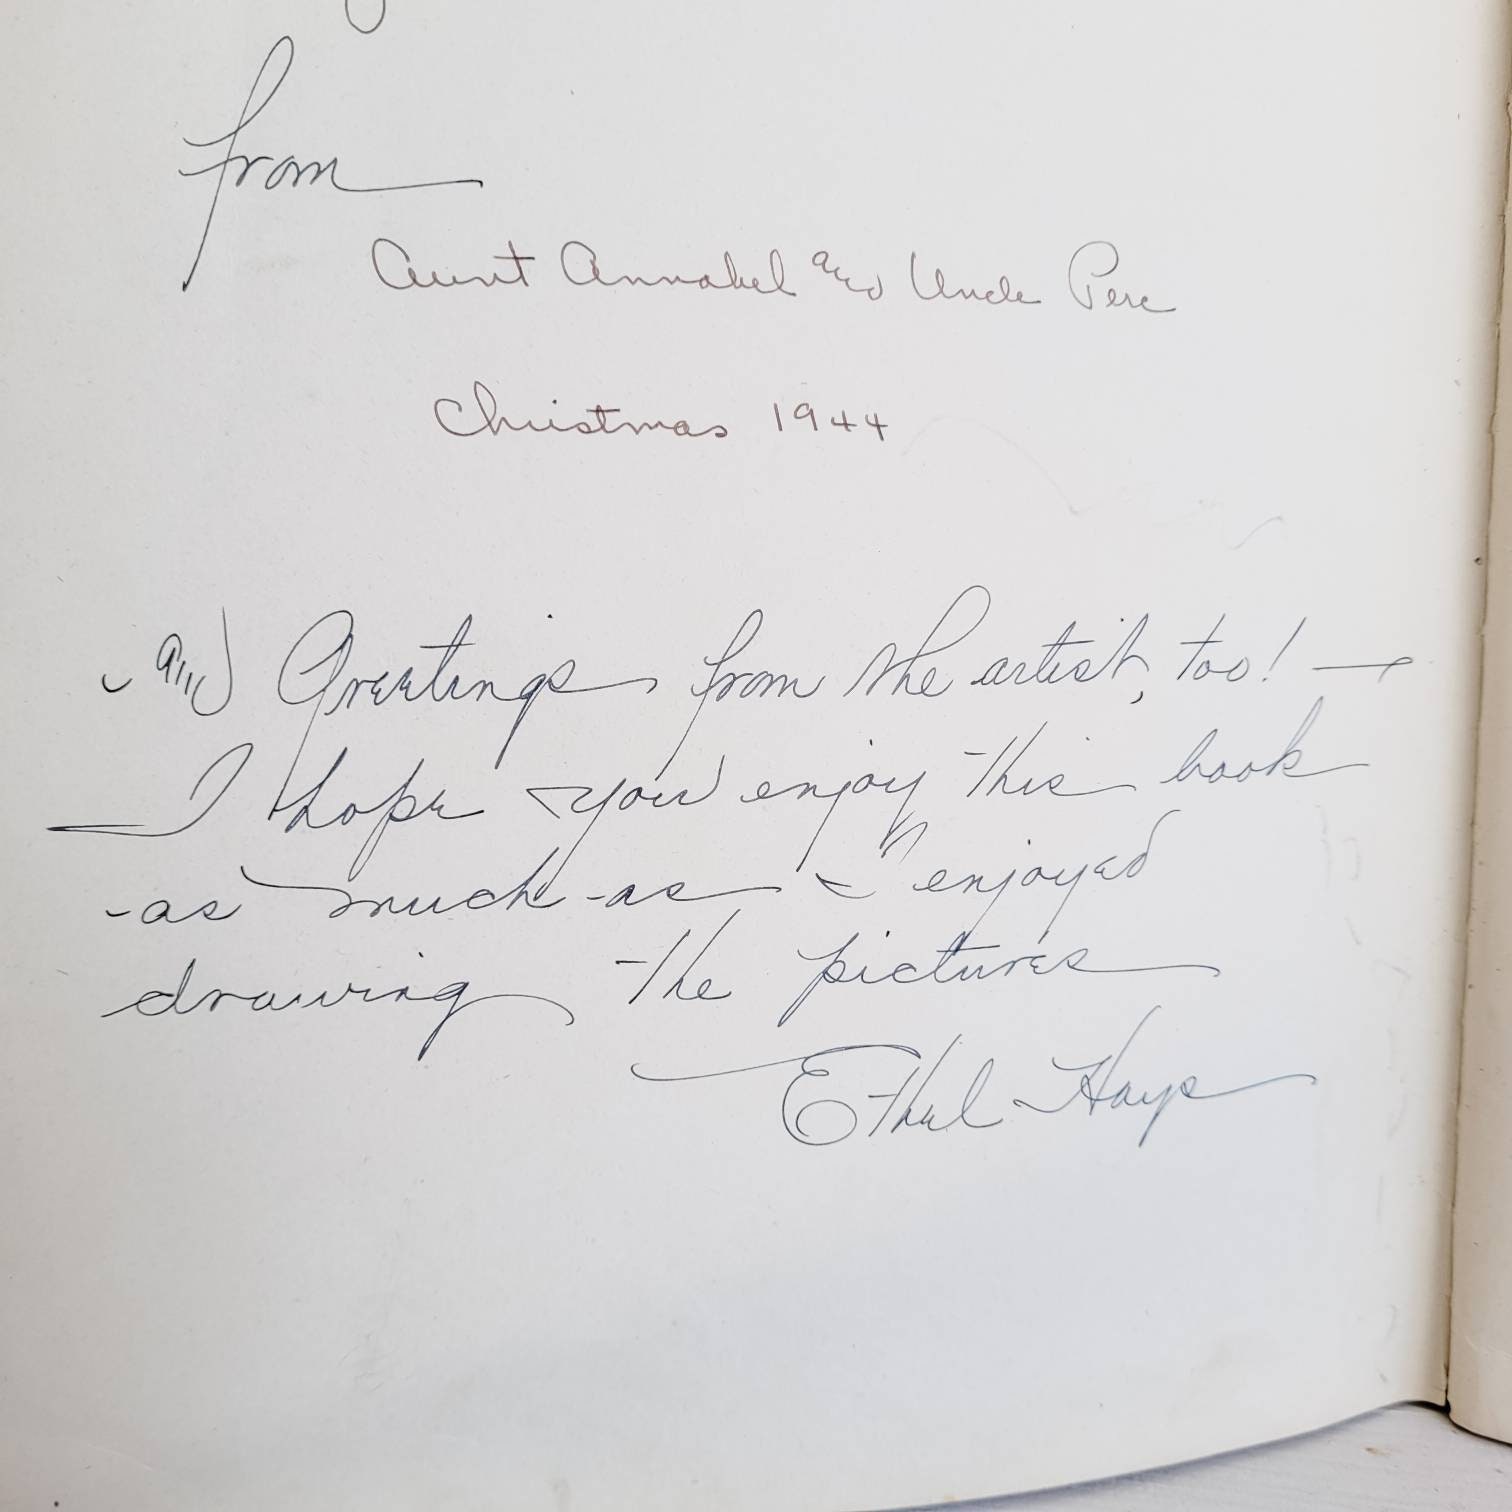 from
Aunt Annabel and Uncle Perc
Christmas 1944
and Greetings from the artist, too! —
I hope you enjoy this book
as much as I enjoyed
drawing the pictures
Ethel Hays